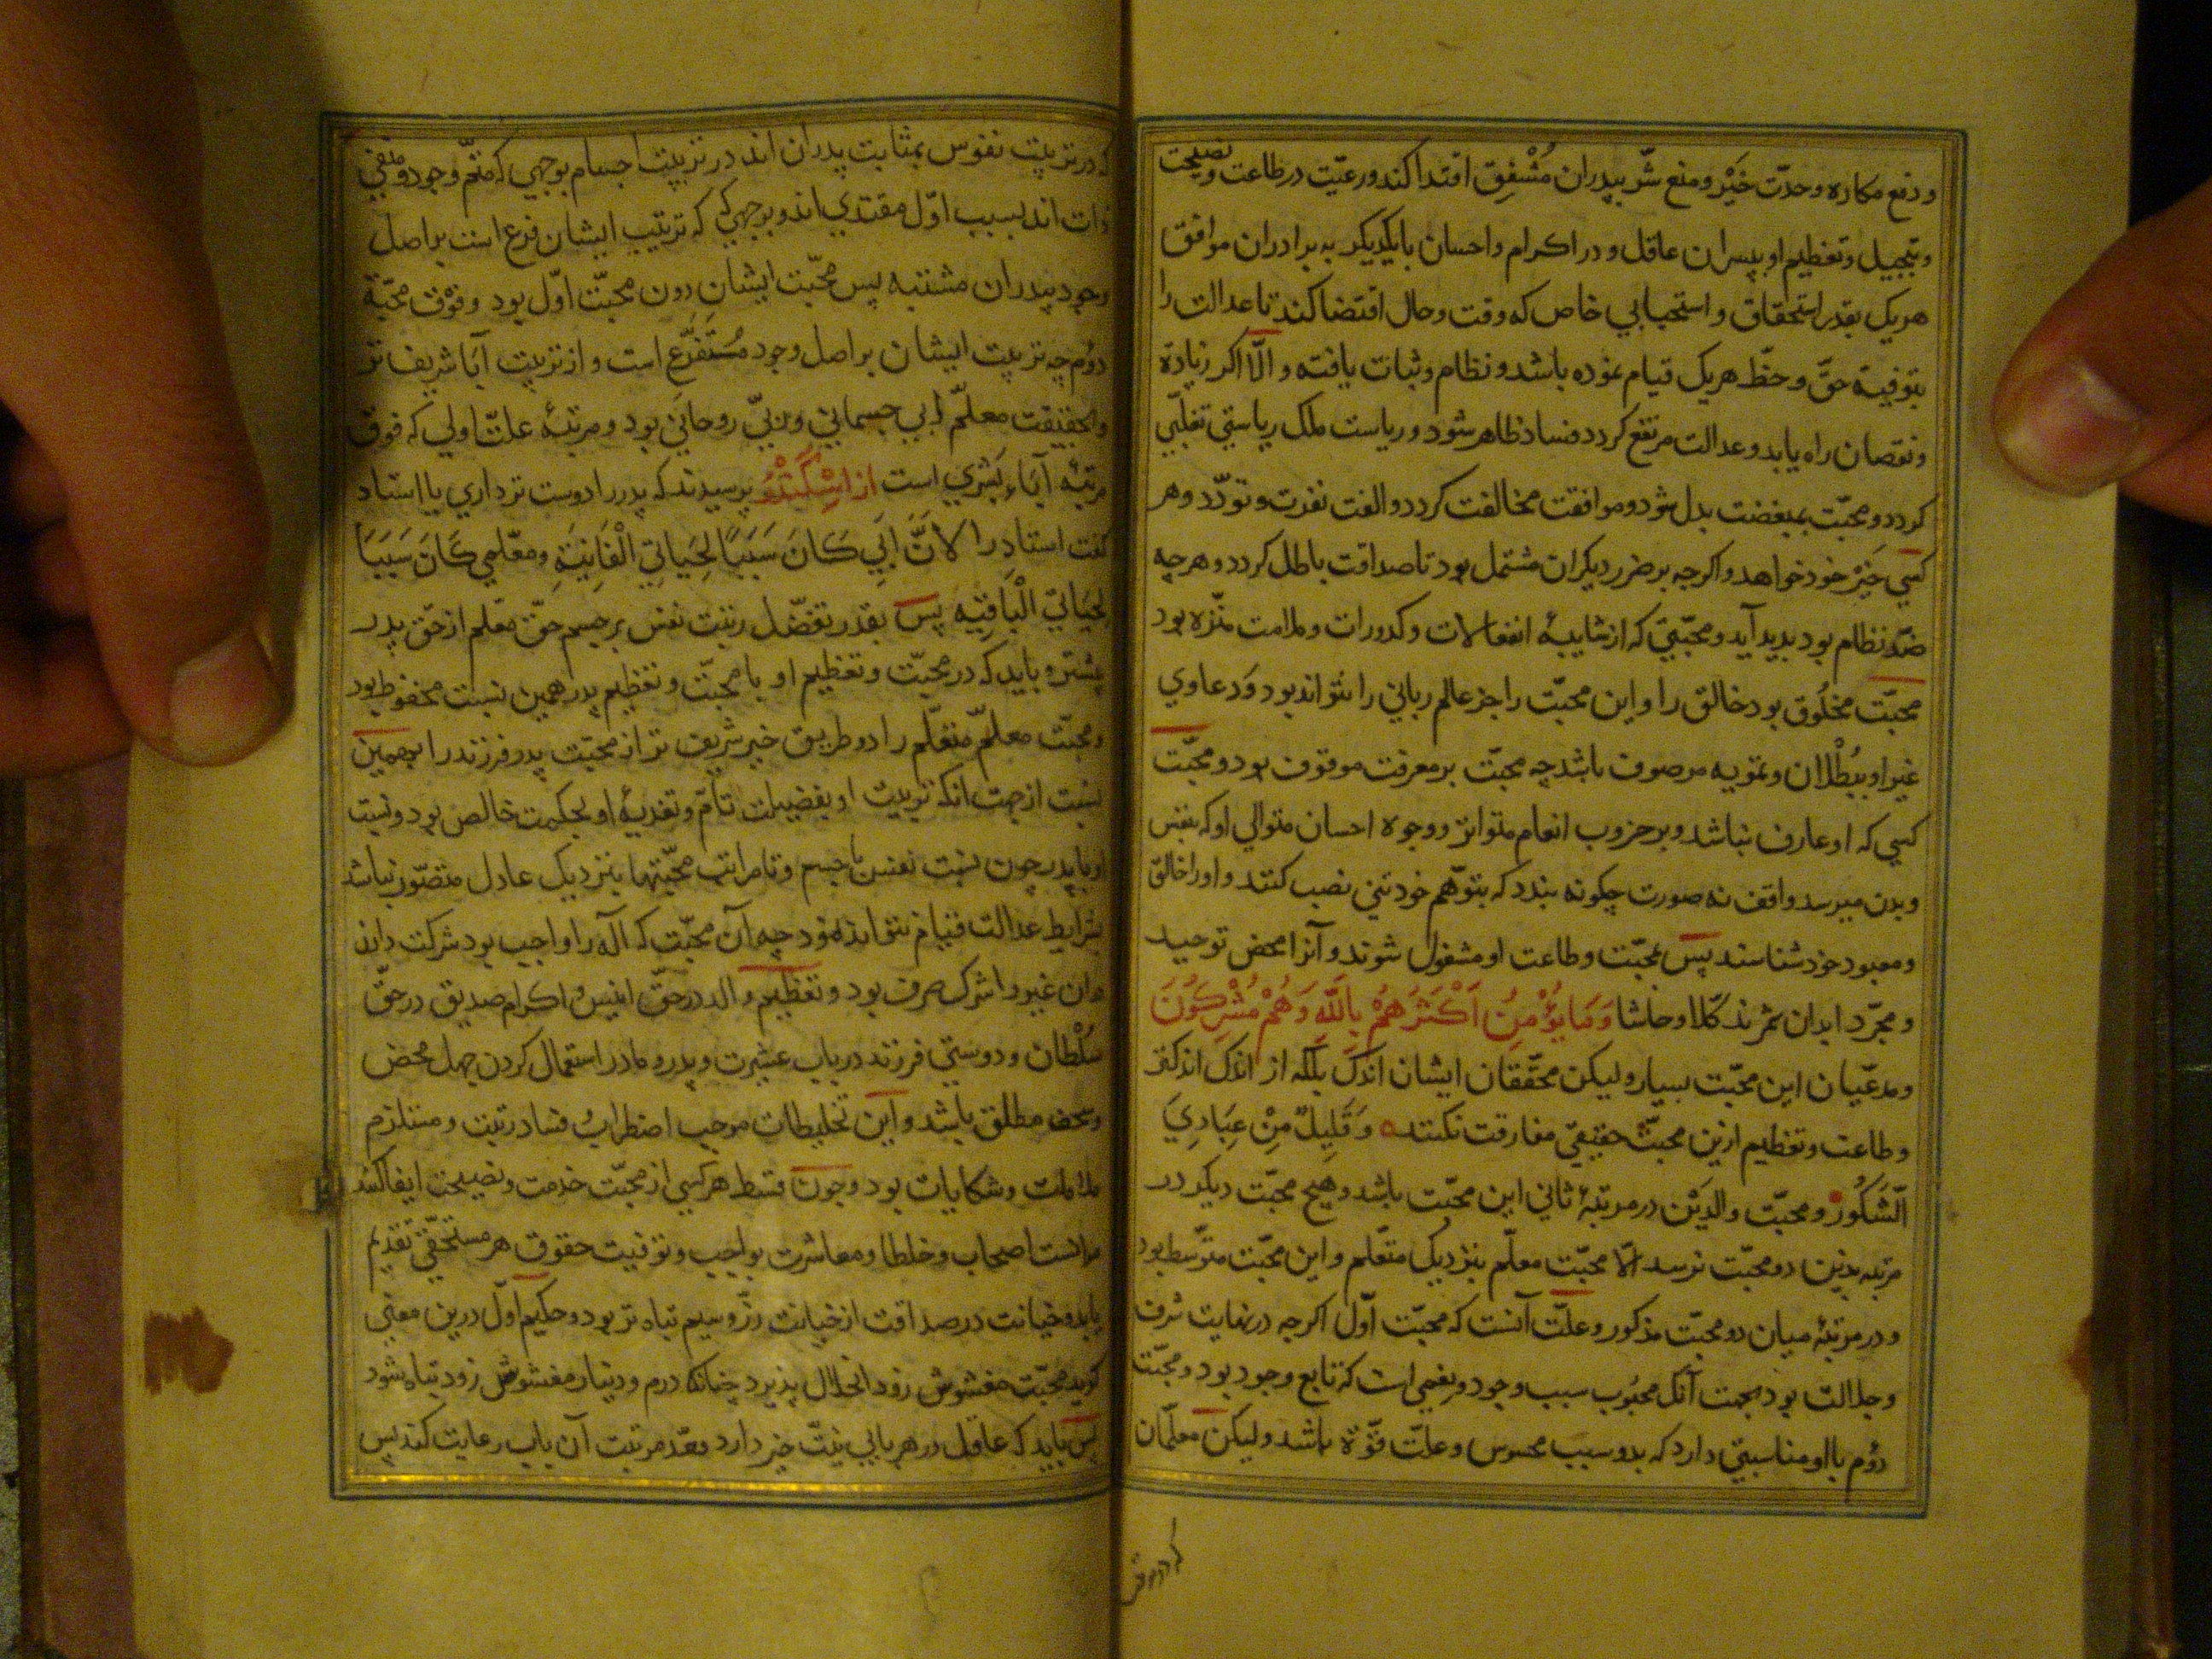 و دفع مکاره و حدت خَیْر و منع شرّ بپدران مُشْفِق اقتدا کند و رعیّت در طاعت و نصیحت
و تبجیل و تعظیم او بپسران عاقل و در اکرام و احسان بایکدیکر به برادران موافق
هر یک بقدر استحقاق و استحبابی خاص که وقت و حال اقتضا کند تا عدالت را
بتوفیة حقّ و حظّ هر یک قیام نموده باشد و نظام و ثبات یافته و الّا اکر زیادة
و نقصان راه یابد و عدالت مرتفع کردد فساد ظاهر شود و ریاست ملک ریاستی تغلّبی
کردد و محبّت بمبغضت بدل شود و موافقت مخالفت کردد و الفت نفرت و تودّد و هر
کسی خَیْر خود خواهد و اکرچه بر ضرر دیکران مشتمل بود تا صداقت باطل کردد و هرچه
ضدّ نظام بود بدید آید و محبّتی که از شایبهٔ انفعالات و کدورات و ملامت منزّه بود
محبّت مخلُوق بود خالق را و این محبّت را جز عالم ربانی را نتواند بود وَ دعاوی
غیر او ببُطْلان و تمویه موصوف باشد چه محبّت بر معرفت موقوف بود و محبّت
کسی که او عارف نباشد و بر ضروب انعام متواتر و وجوه احسان متوالی او که بنفس
و بدن میرسد واقف نه صورت چکونه بندد که بتوهّم خود بتی نصب کنند و او را خالق
و معبود خود شناسند پس بمحبّت و طاعت او مشغول شوند و آنرا محض توحید
و مجرّد ایمان شمرند کلّا و حاشا وَمَا یؤْمِنُ اَکْثَرُهُمْ بِاللّٰهِ وَ هُمْ مُشْرِکُونَ
و مدعّیان این محبّت بسیار ولیکن محقّقان ایشان اندک بلکه از اندک اندکتر
و طاعت و تعظیم ازین محبّت حقیقی مفارقت نکنند وَ قَلِیلٌ مِنْ عِبَادِیَ
الَّشَکُورُ و محبّت والدَیْن در مرتبهٔ ثانی این محبّت باشد و هیچ محبّت دیکر در
مرتبه بدین دو محبّت نرسد الّا محبّت معلّم بنزدیک متعّلم و این محبّت متوّسط بود
و در مرتبهٔ میان دو محبّت مذکور و علّت آنست که محبّت اوّل اکرچه در نهایت شرف
و جلالت بود بجهت آنک محبُوب سبب وجود و نعمی است که تابع وجود بود و محبّت
دوُم با او مناسبتی دارد که بدو سبب محسوس و علّت قوّة باشد ولیکن معلّمان
که در تربیت نفوس بمثابت پدران اند در تربیت اجسام بوجهی که متمّم وجود و مبقی
ذات اند بسبب اوّل مقتدی اند و بوجهی که که تربیت ایشان فرع است بر اصل
وجود بپدران مشتبه پس محبّت ایشان دون محبّت اوّل بود و فوْق محبّة
دوُم چه تربیت ایشان بر اصل وجود مسُتَفَرَّع است و از تربیت آبا شریف تر
و بحقیقت معلّم ابی جسمانی و ربّی روحانی بود و مرتبهٔ علّت اولی که فوق
مرتبهٔ آباءِ بَشری است از اسْکَنْدَر پرسیدند که پدر را دوست تر داری یا استاد
کفت استاد را لانَّ اَبِی کَانَ سَبَبًا لِحَیاتِی الْفَانِیَةِ و معّلمی کَانَ سَبَبَا
لِحَیَاتِیَ الْبَاقِیَه پس بقدر تفضّل رتبت نفس بر جسم حقّ معّلم از حقّ پدر
بیشتر و باید که در محبّت و تعظیم او با محبّت و تعظیم پدر همین نسبت محفوظ بود
و محبّت معلّم متعّلم را در طریق خیر شریف تر از محبّت پدر فرزند را بهمین
نسبت از جهت انکه تربیت او بفضیلت تامّ و تغذیهٔ او بحکمت خالص بود و نسبت
او با پدر چون نسبت نفس با جسم و تا مراتب محبّتها بنزدیک عادل متصّور نباشد
بشرایط عدالت قیام نتواند نمود چه آن محبّت که اله را واجب بود شرکت دادن
در آن غیر را شرک صرف بود و تعظیم والد در حقّ رئیس و اکرام صدیق در حقّ
سُلْطان و دوستی فرزند در باب عشیرت و پدر و مادر استعمال کردن جهل محض
و سخف مطلق باشد و این تخلیطات موجب اضطراب فساد رتبت و مستلزم
ملامت و شکایات بود و چون قسط هر کسی از محبّت خدمت و نصیحت ایفا کند
مؤانست اصحاب و خلطا و معاشرت بواجب و توفیت حقوق هر مستحّقی تقدیم
یابد و خیانت در صداقت از خیانت زرّ و سیم تباه تر بود و حکیم اوّل درین معنی
کوید محبّت مغشوش زود انحلال پذیرد چنانکه درم و دینار مغشوش زود تباه شود
پس باید که عاقل در هر بابی نیّت خیر دارد و حدّ مرتبت آن باب رعایت کند پس
که در تر